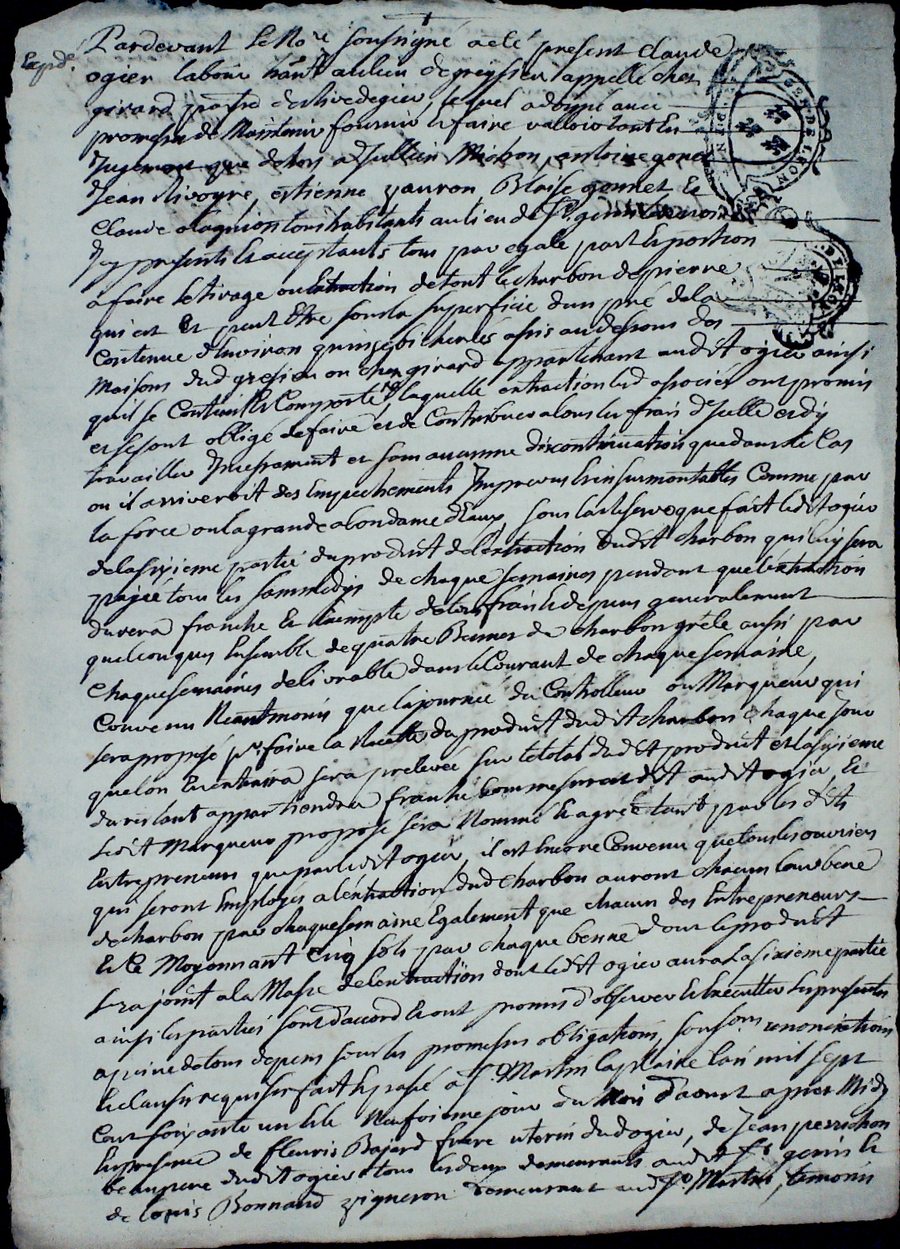 Expdé
Pardevant le No.re soussigné a eté present claude
ogier labour habt au lieu de gresieu appellé chez
girard parsse de rivedegier, lequel a donné avec
promesse de Maintenir fournir et faire valloir tant en
Jugement que dehors a Jullien Michon, antoine gonet
Jean , estienne Zauron, Blaise gonnet et
Claude tous habitants au lieu de St. genis terrenoire
Jcy presents et acceptants tous par egale part et portion
a faire le tirage ou extraction de tout le charbon de pierre
qui est et peut Etre sous la superficie d'un pré de la
Contenue d'Environ quinze bicherées assis au dessous des
Maisons dud gresieu ou chez girard appartenant audit ogier ainsi
qu'il se Contient et Comporte, laquelle extraction lesd associés ont promis
et se sont obligé de faire et de Contribuer a tous les frais d'Jcelle et d'y
travailler Jncessament et sans aucunne discontinuation que dans le Cas
ou il arriveroit des Empechements Jmprevus et insurmontables Comme par
la force ou la grande abondance d'Eaux, sous la reserve que fait ledit ogier
de la sixieme partie du produit de l'extraction dudit charbon qui luy sera
payée tous les sammedys de chaque semaines pendant que l'extraction
durera franche et Exempte de tous frais et depens generalement
quelconques Ensemble de quatre Bennes de charbon grêle aussi par
Chaque semaines delivrable dans le Courant de chaque semaine,
Convenu Neantmoins que la journée du Controlleur ou Marqueur qui
sera proposé pr. faire la Recette du produit dudit charbon chaque Jour
que l'on En entraira sera prelevée sur le total dudit produit et la sixieme
du restant appartiendra franche comme susdit audit ogier, Et
ledit Marqueur proposé sera Nommé et agréé tant par les dits
Entrepreneurs que par ledit ogier, il est Encore Convenu que tous les ouvriers
qui seront Employés a l'extraction dud charbon auront chacun leur bene
de charbon par chaque semaine Egalement que chacun des Entrepreneurs
Et Ce Moyennant cinq sols par chaque benne dont le produit
sera joint a la Masse de l'extraction dont ledit ogier aura la sixieme partie
ainsi les parties sont d'accord et ont promis d'observer et Executter les presentes
a peine de tous depens sous les promesses obligations, renonciations
et clauses requises fait et passé a St. Martin la plaine l'an mil sept
Cent soixante un et le jour du Mois d'aoust apres Midy
En presence de fleuris Bajard frere uterin dud ogier, de Jean perrichon
beaupere dudit ogier tous les deux demeurants audit St genis et
de Louis Bonnard vigneron demeurant aud St. Martin, temoins